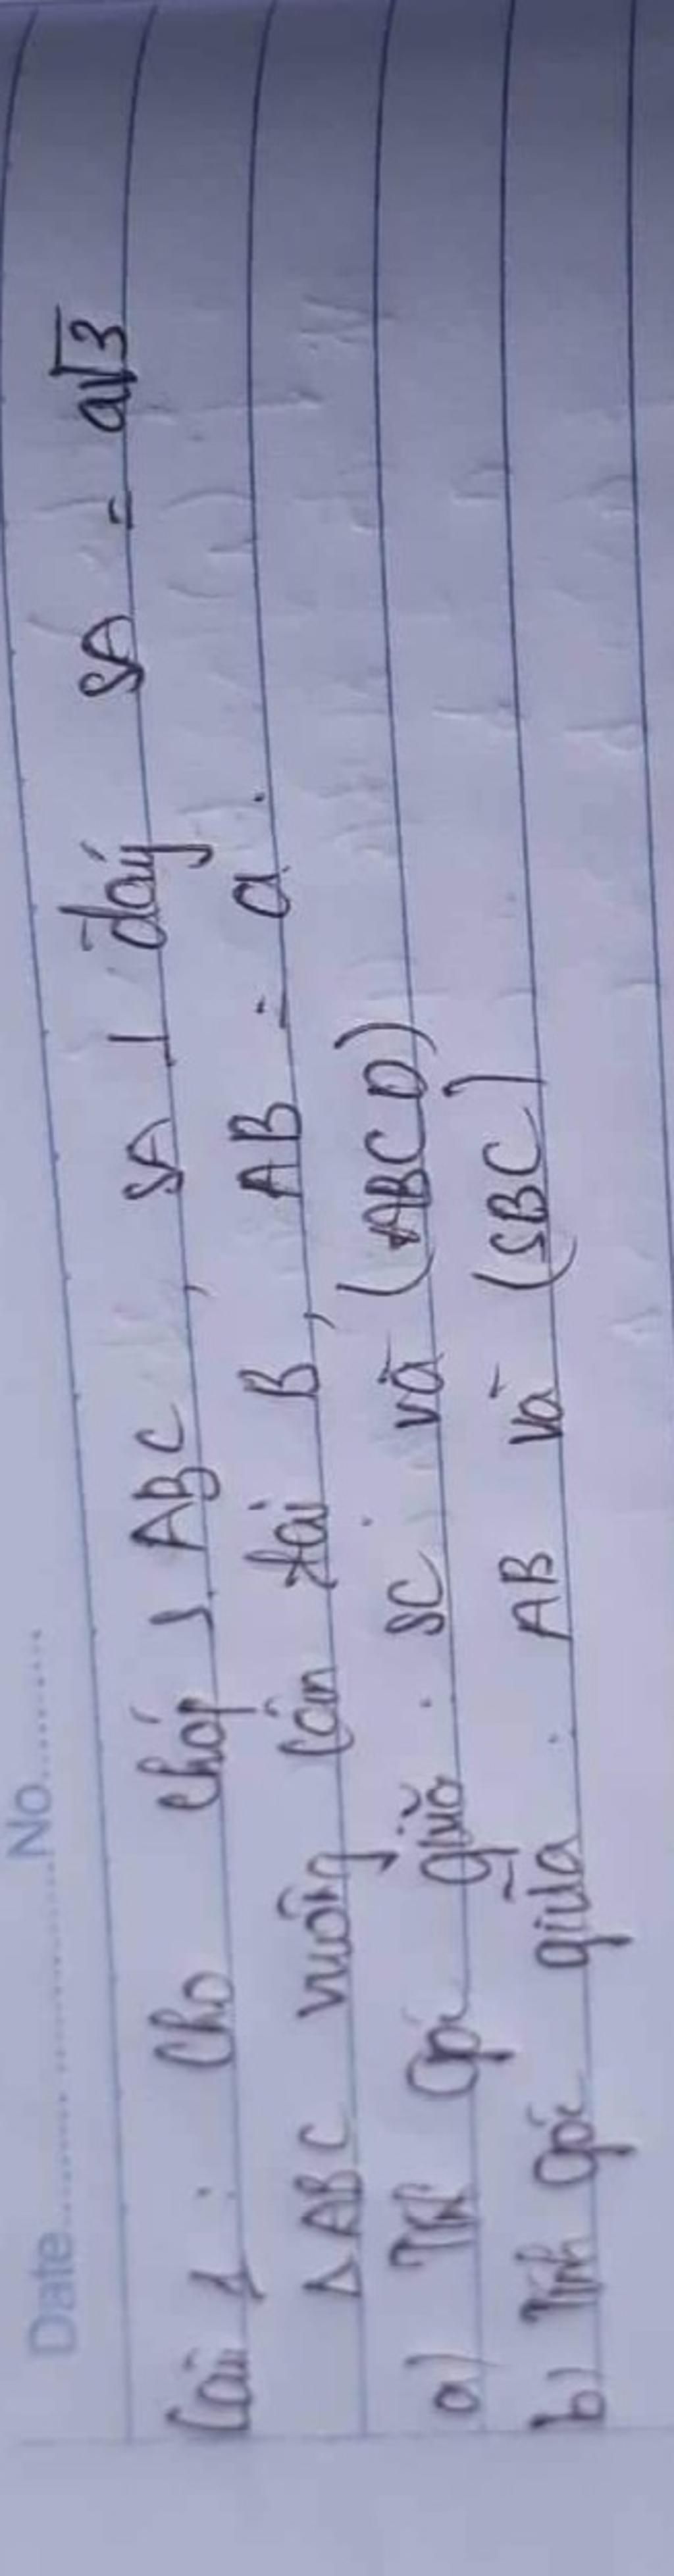 Date..................No...........
Câu 1 : Cho chóp S.ABC , SA ⊥ đáy SA = a√3
Δ ABC vuông cân tại B , AB = a .
a) Tính góc giữa . SC và (ABCD)
b) Tính góc giữa . AB và (SBC)